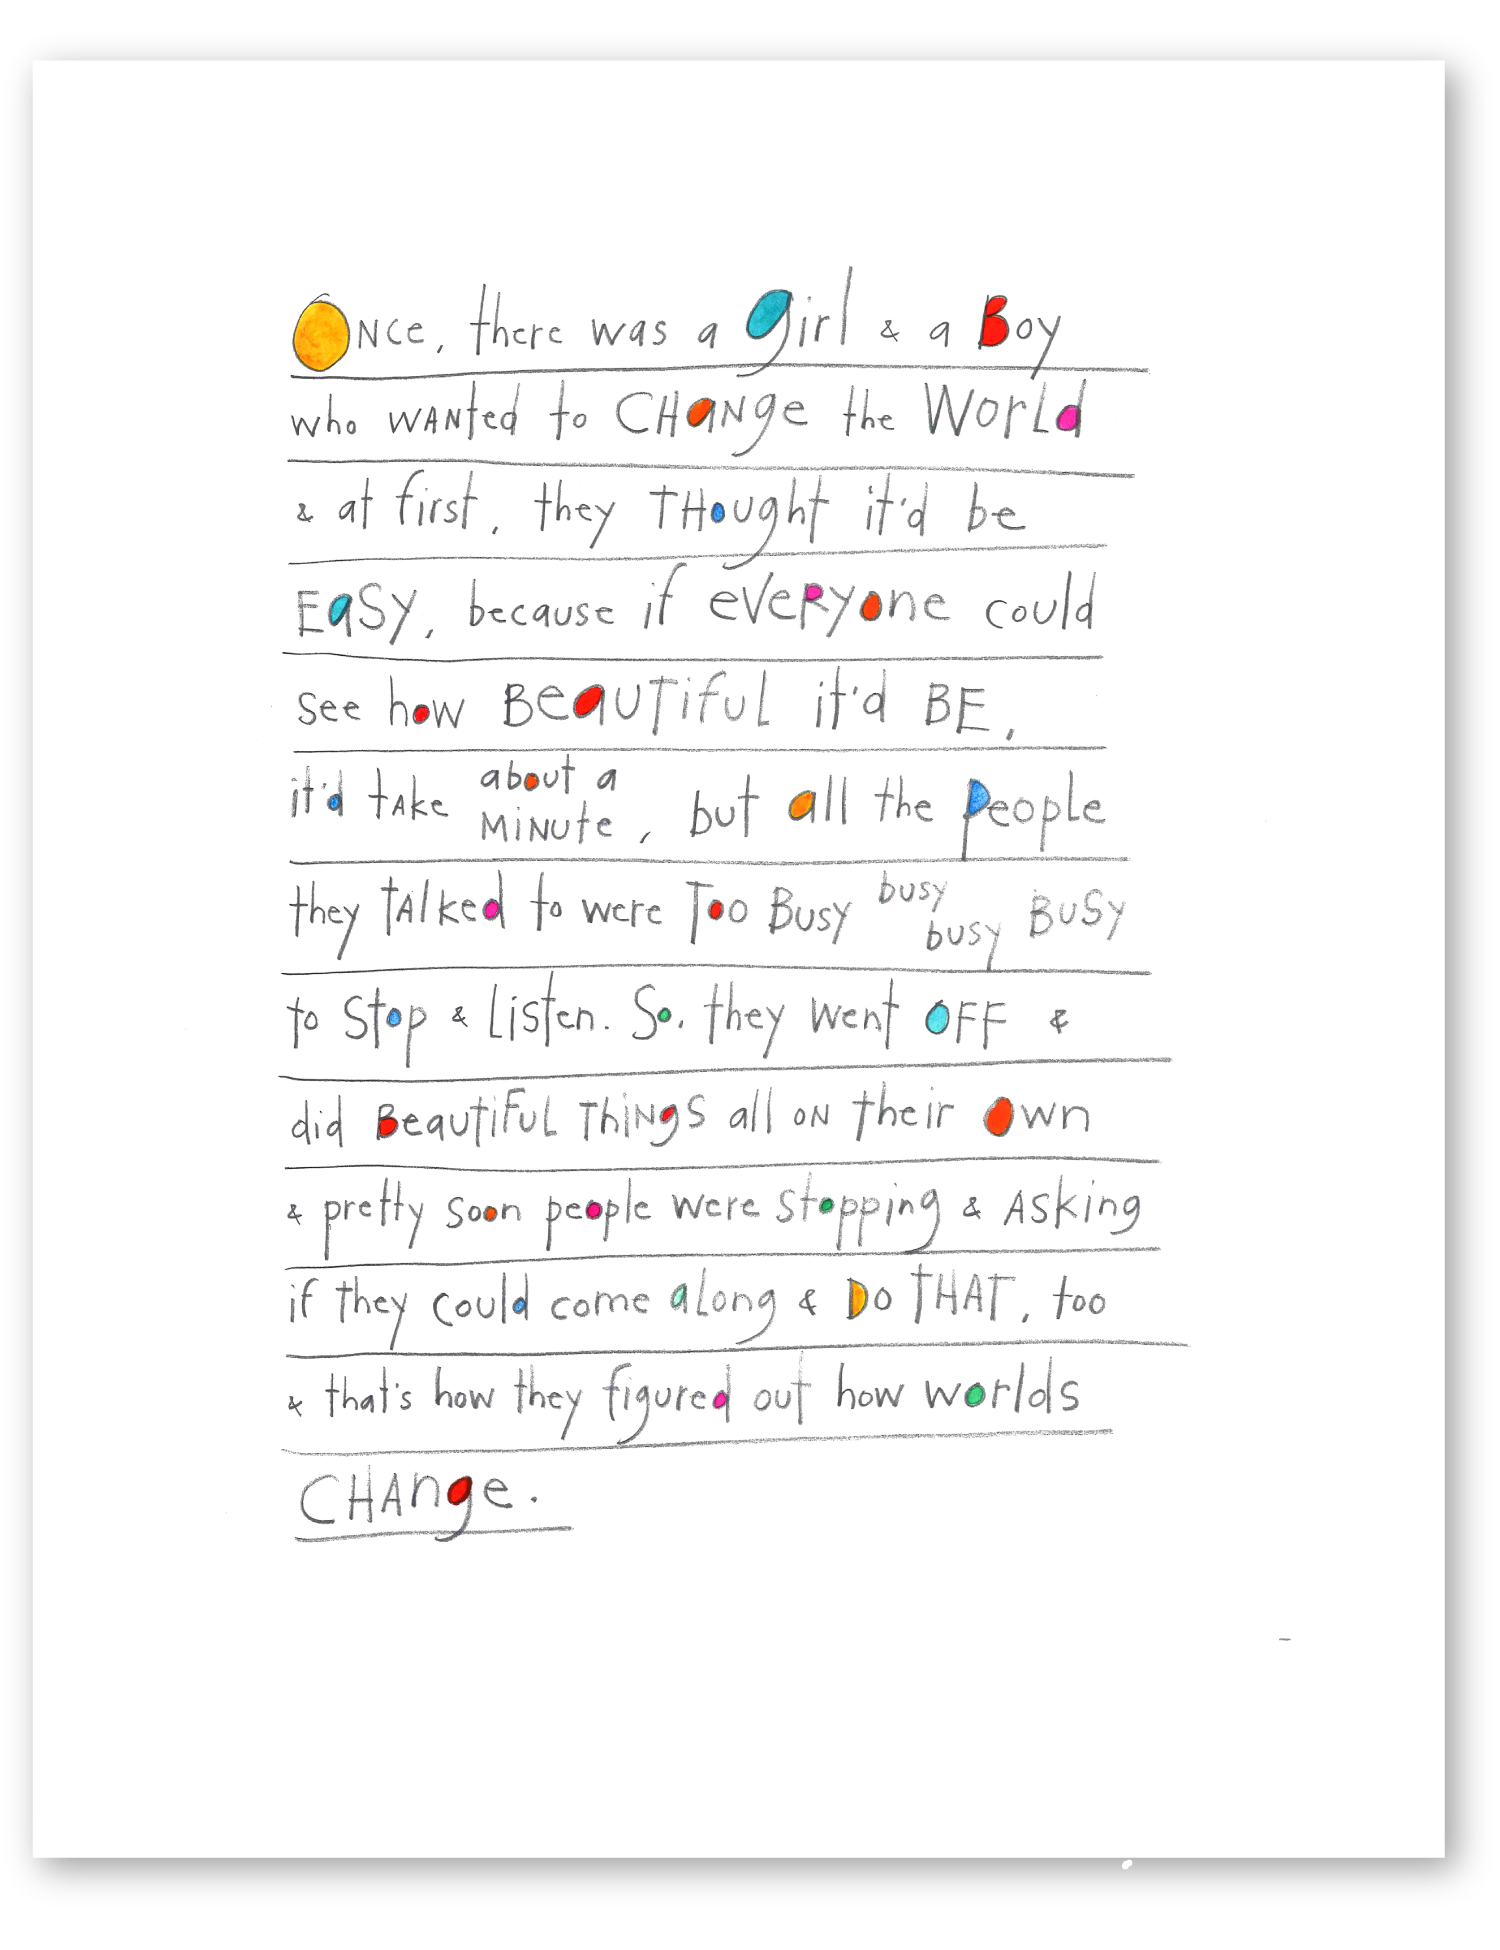 ONce, there was a girl & a Boy
who WANted to CHaNge the WorLd
& at first, they THought it'd be
EaSy, because if eVeRyone could
see how BeaUTifUL it'd BE,
it'd tAke about a MiNUte, but all the People
they tAlked to were Too Busy busy busy BuSy
to Stop & Listen. So, they went OFF &
did BeaUtiFUL ThiNgS all oN their OWn
& pretty soon people were stopping & ASking
if they could come aLong & Do tHAT, too
& that's how they figured out how worlds
CHAnge.